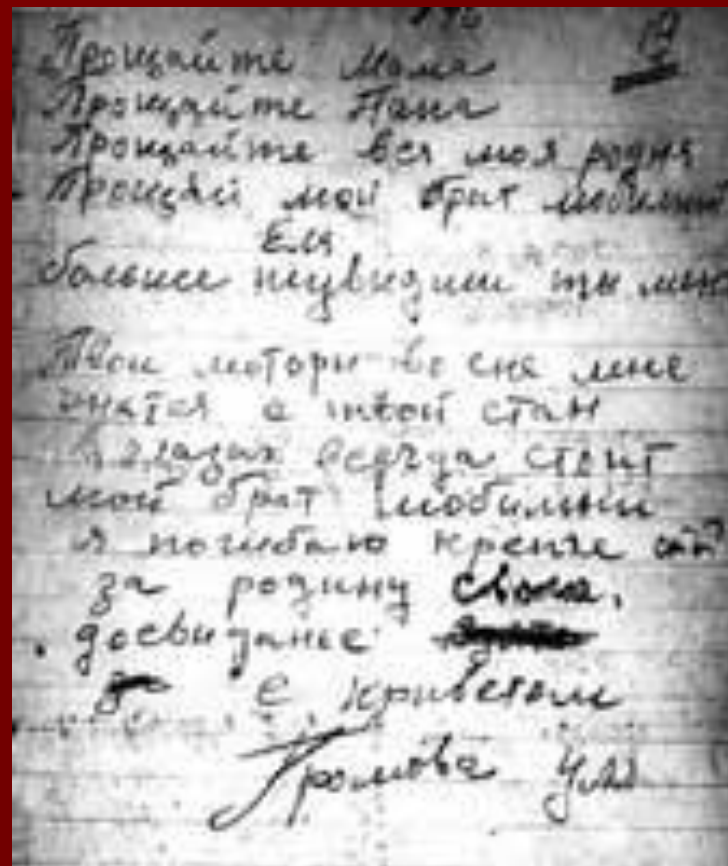 Прощайте Мама
Прощайте Папа
Прощайте вся моя родня
Прощай мой брат любимый
Еля
больше неувидиш ты мня
Твои моторы во сне мне
снятся е твой стан
в глазах всегда стоит
мой брат любимый
я погибаю крепче
за родину свою.
досвиданье
с приветом
Громова Уля